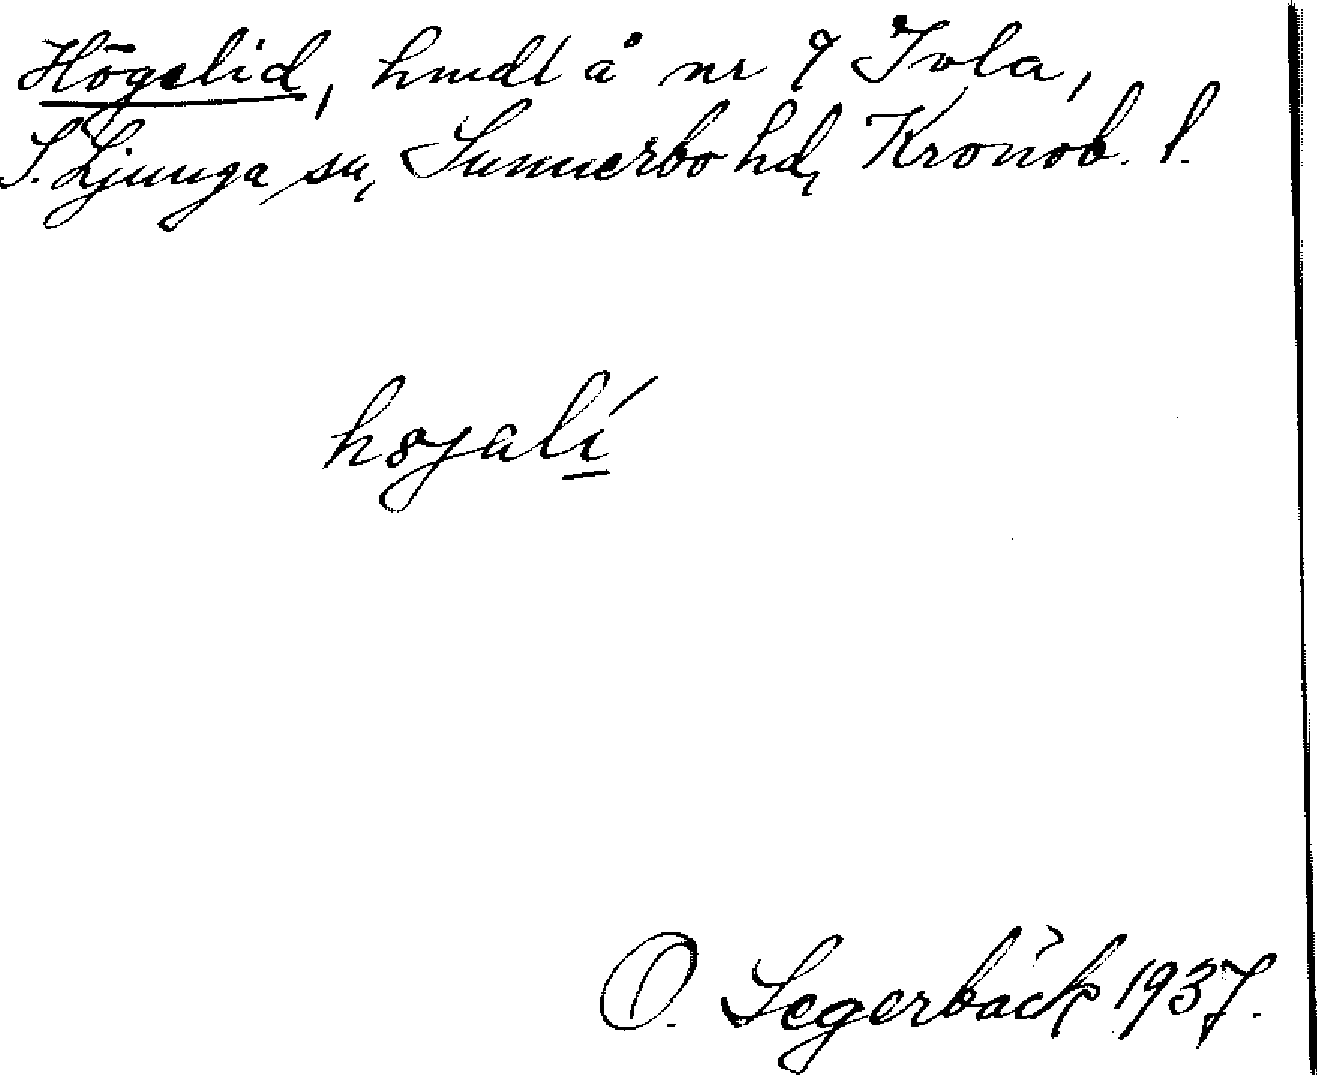 Högelid, hmdl å nr 9 Ivla,
S. Ljunga sn, Sunnerbo hd, Kronob. l.
O. Segerbäck 1937.